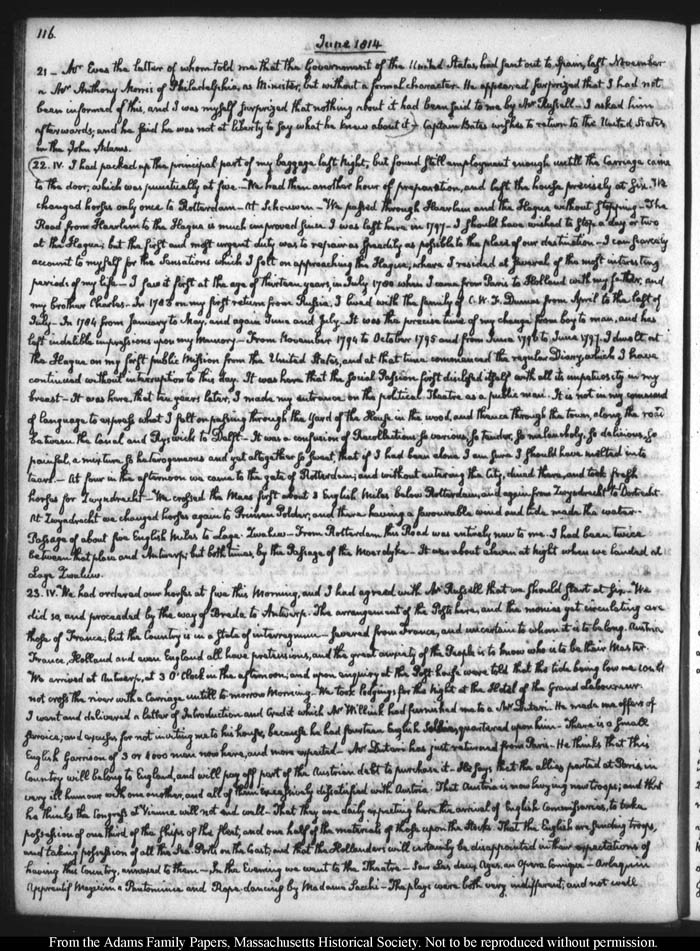 116.
June 1814
21 — Mr Eves the latter of whom told me that the Government of the United States, had sent out to Spain, last November
a Mr Anthony Morris of Philadelphia, as Minister, but without a formal character. He appeared surprized that I had not
been informed of this, and I was myself surprized that nothing about it had been said to me by Mr Russell — I asked him
afterwards; and he said he was not at liberty to say what he knew about it — Captain Bates wishes to return to the United States
in the John Adams.
22. IV. I had packed up the principal part of my baggage last Night, but found still employment enough untill the Carriage came
to the door, which was punctually at five — We had then another hour of preparation, and left the house precisely at Six. We
changed horses only once to Rotterdam — At Schouwen — We passed through Haerlem and the Hague without stopping — The
Road from Haerlem to the Hague is much improved since I was last here in 1797 — I should have wished to stop a day or two
at the Hague; but the first and most urgent duty was to repair as speedily as possible to the place of our destination — I can scarcely
account to myself for the Sensations which I felt on approaching the Hague, where I resided at several of the most interesting
periods of my life — I saw it first at the age of thirteen years, in July 1780 when I came from Paris to Holland with my father, and
my brother Charles. In 1783 on my first return from Russia, I lived with the family of C. W. F. Dumas from April to the last of
July — In 1784 from January to May, and again June and July — It was the precise time of my change from boy to man, and has
left indelible impressions upon my Memory — From November 1794 to October 1795 and from June 1796 to June 1797. I dwelt at
the Hague on my first public Mission from the United States, and at that time commenced the regular Diary, which I have
continued without interruption to this day. It was here that the social Passion first disclosed itself with all its impetuosity in my
breast — It was here, that ten years later, I made my entrance on the political Theatre as a public man. It is not in my command
of language to express what I felt on passing through the Yard of the House in the wood, and thence through the town, along the road
between the Canal and Ryswick to Delft — It was a confusion of Recollections so various, so tender, so melancholy, so delicious, so
painful, a mixture so heterogeneous and yet altogether so sweet, that if I had been alone I am sure I should have melted into
tears. — At four in the afternoon we came to the gate of Rotterdam; and without entering the City, dined there, and took fresh
horses for Zwyndrecht — We crossed the Maas first about 3 English Miles below Rotterdam, and again from Zwyndrecht to Dortrecht.
At Zwyndrecht we changed horses again to Princen Polder, and there having a favourable wind and tide made the water
Passage of about five English Miles to Lage-Zwaluw — From Rotterdam this Road was entirely new to me. I had been twice
between that place and Antwerp; but both times, by the Passage of the Moerdyke — It was about eleven at night when we landed at
Lage Zwaluw.
23. IV. We had ordered our horses at five this Morning, and I had agreed with Mr Russell that we should start at Six — We
did so, and proceeded by the way of Breda to Antwerp. The arrangement of the Posts here, and the monies yet circulating are
those of France; but the Country is in a State of interregnum — severed from France, and uncertain to whom it is to belong. Austria
France, Holland and even England all have pretensions, and the great anxiety of the People is to know who is to be their Master.
We arrived at Antwerp, at 3 O'Clock in the afternoon; and upon enquiry at the Post-house were told that the tide being low we could
not cross the river with a Carriage untill to morrow Morning. We took lodgings for the Night at the Hotel of the Grand Laboureur.
I went and delivered a letter of Introduction and Credit which Mr Willink had furnished me to a Mr Dutari. He made me offers of
service; and excuses for not inviting me to his house, because he had fourteen English Soldiers, quartered upon him — There is a small
English Garrison of 3 or 4000 men now here, and more expected — Mr Dutari has just returned from Paris. He thinks that this
Country will belong to England, and will pay off part of the Austrian debt to purchase it. He says that the allies parted at Paris, in
very ill humour with one another, and all of them excessively dissatisfied with Austria. That Austria is now buying new troops; and that
he thinks the Congress at Vienna will not end well — That they are daily expecting here the arrival of English Commissaries, to take
possession of one third of the Ships of the fleet, and one half of the materials of those upon the Stocks. That the English are sending troops,
and taking possession of all the Sea Ports on the Coast; and that the Hollanders will certainly be disappointed in their expectations of
having this Country, annexed to them — In the Evening we went to the Theatre — Saw Les deux Ages, an Opera Comique — Arlequin
Apprentif Magicien a Pantomime and Rope-dancing by Madame Sacchi — The plays were both very indifferent; and not well
From the Adams Family Papers, Massachusetts Historical Society. Not to be reproduced without permission.